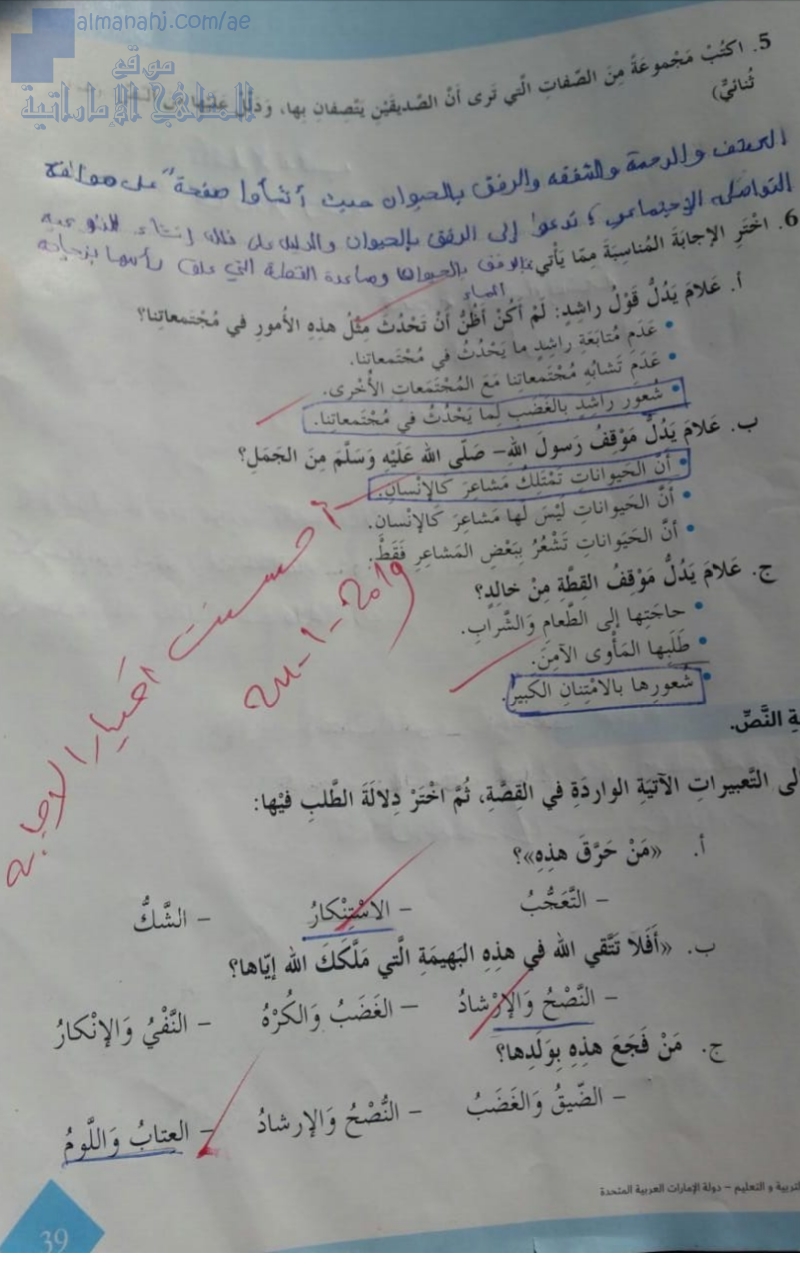 almanahj.com/ae
موقع
المناهج الإماراتية
5. اكْتُبْ مَجْموعَةً مِنَ الصِّفاتِ الَّتي تَرى أَنَّ الصَّديقَيْنِ يَتَّصِفانِ بِها، وَدَلِّلْ عَلَيْها مِنَ النَّصِّ.
ثُنائيٌّ)
العطف والرحمة والشفقه والرفق بالحيوان حيث أنشأوا صفحة على مواقع
التواصل الإجتماعي، تدعوا إلى الرفق بالحيوان والدليل على ذلك إنشاء
6. اخْتَرِ الإجابَةَ المُناسِبَةَ مِمّا يَأْتي:
بالرفق بالحيوان ومساعدة القطة التي علق رأسها بزجاجة
الماء
أ. عَلامَ يَدُلُّ قَوْلُ راشِدٍ: لَمْ أَكُنْ أَظُنُّ أَنْ تَحْدُثَ مِثْلُ هذِهِ الأُمورِ في مُجْتَمعاتِنا؟
• عَدَمِ مُتابَعَةِ راشِدٍ ما يَحْدُثُ في مُجْتَمعاتِنا.
• عَدَمِ تَشابُهِ مُجْتَمعاتِنا مَعَ المُجْتَمَعاتِ الأُخْرى.
• شُعورِ راشِدٍ بِالغَضَبِ لِما يَحْدُثُ في مُجْتَمعاتِنا.
ب. عَلامَ يَدُلُّ مَوْقِفُ رَسولِ اللهِ- صَلّى الله عَلَيْهِ وَسَلَّمَ مِنَ الجَمَلِ؟
• أَنَّ الحَيواناتِ تَمْتَلِكُ مَشاعِرَ كَالإنْسانِ.
• أَنَّ الحَيواناتِ لَيْسَ لَها مَشاعِرَ كَالإنْسانِ.
• أَنَّ الحَيَواناتِ تَشْعُرُ بِبَعْضِ المَشاعِرِ فَقَطْ.
ج. عَلامَ يَدُلُّ مَوْقِفُ القِطَّةِ مِنْ خالِدٍ؟
• حاجَتِها إلى الطَّعامِ وَالشَّرابِ.
• طَلَبِها المَأْوى الآمِنَ.
• شُعورِها بالامْتِنانِ الكَبيرِ.
أحسنت اختيار الاجابه
2019
ةِ النَّصِّ.
لى التَّعبيراتِ الآتيَةِ الوارِدَةِ في القِصَّةِ، ثُمَّ اخْتَرْ دِلالَةَ الطَّلبِ فيْها:
أ. «مَنْ حَرَّقَ هذِهِ»؟
– التَّعَجُّبُ – الاسْتِنْكارُ – الشَّكُّ
ب. «أَفَلا تَتَّقي الله في هذِهِ البَهيمَةِ الَّتي مَلَّكَكَ الله إيّاها؟
– النَّصْحُ وَالإرْشادُ – الغَضَبُ وَالكُرْهُ – النَّفْيُ وَالإنْكارُ
ج. مَنْ فَجَعَ هذِهِ بِوَلَدِها؟
– الضّيقُ وَالغَضَبُ – النُّصْحُ وَالإرشادُ – العِتابُ وَاللَّومُ
تربية و التعليم – دولة الإمارات العربية المتحدة
39